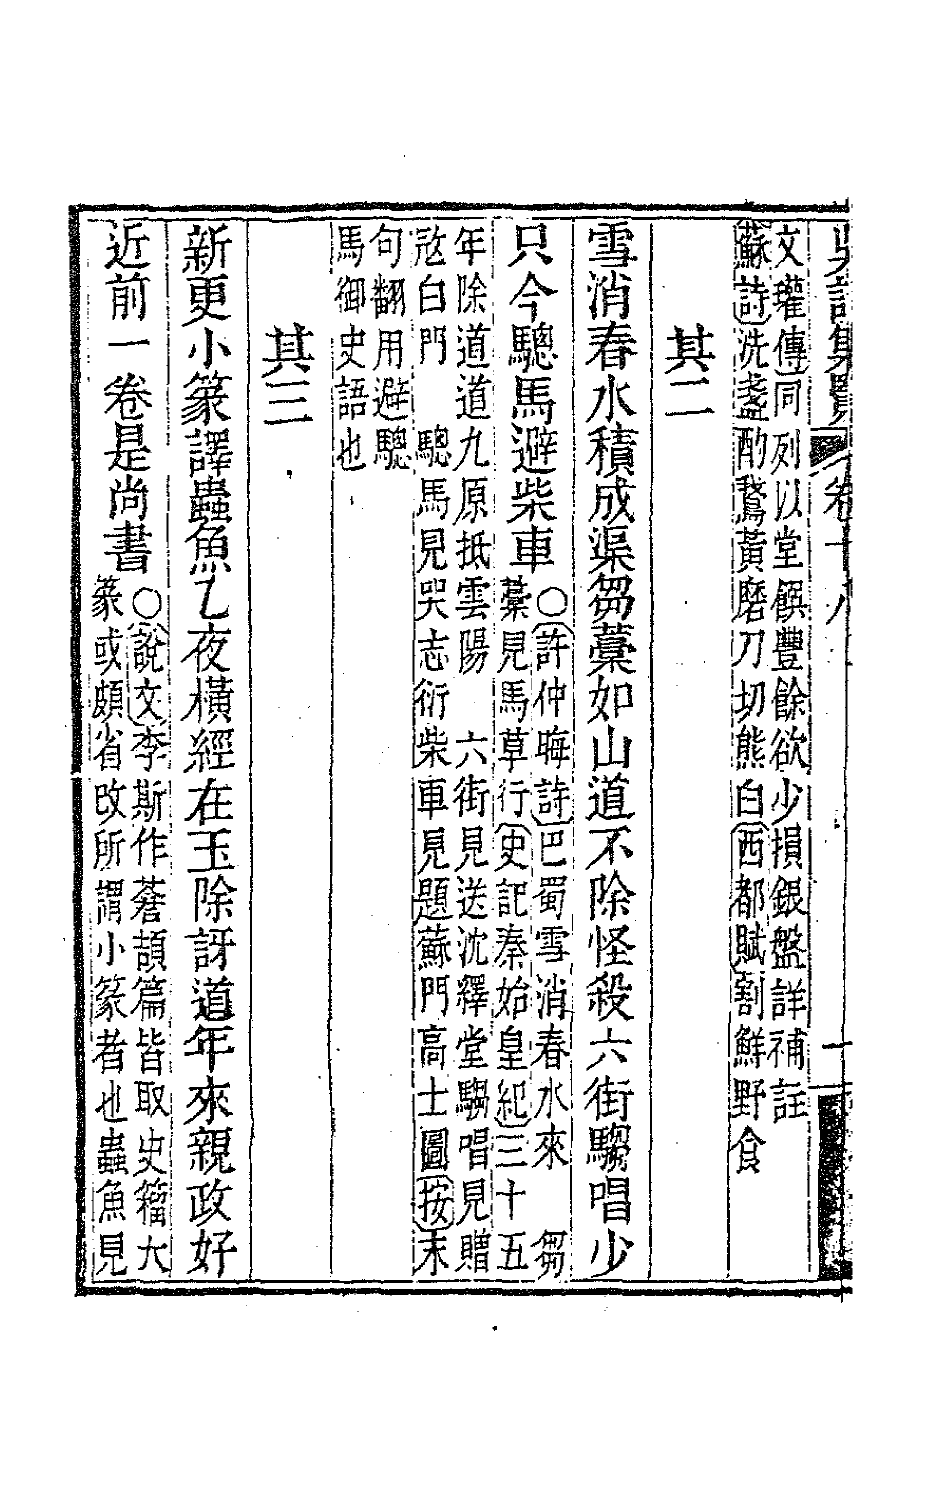 吳詩集覽 卷十八 一
文瓘傳同列以堂饌豐餘欲少損銀盤詳補註
蘇詩洗盞酌鵞黃磨刀切熊白西都賦割鮮野食
其二
雪消春水積成渠芻藁如山道不除怪殺六街騶唱少
只今驄馬避柴車
○許仲晦詩巴蜀雪消春水來 芻
藁見馬草行史記秦始皇紀三十五
年除道道九原抵雲陽 六街見送沈釋堂騶唱見贈
愙白門 驄馬見哭志衍柴車見題蘇門高士圖按末
句翻用避驄
馬御史語也
其三
新更小篆譯蟲魚乙夜橫經在玉除訝道年來親政好
近前一卷是尚書
○說文李斯作蒼頡篇皆取史籀大
篆或頗省改所謂小篆者也蟲魚見